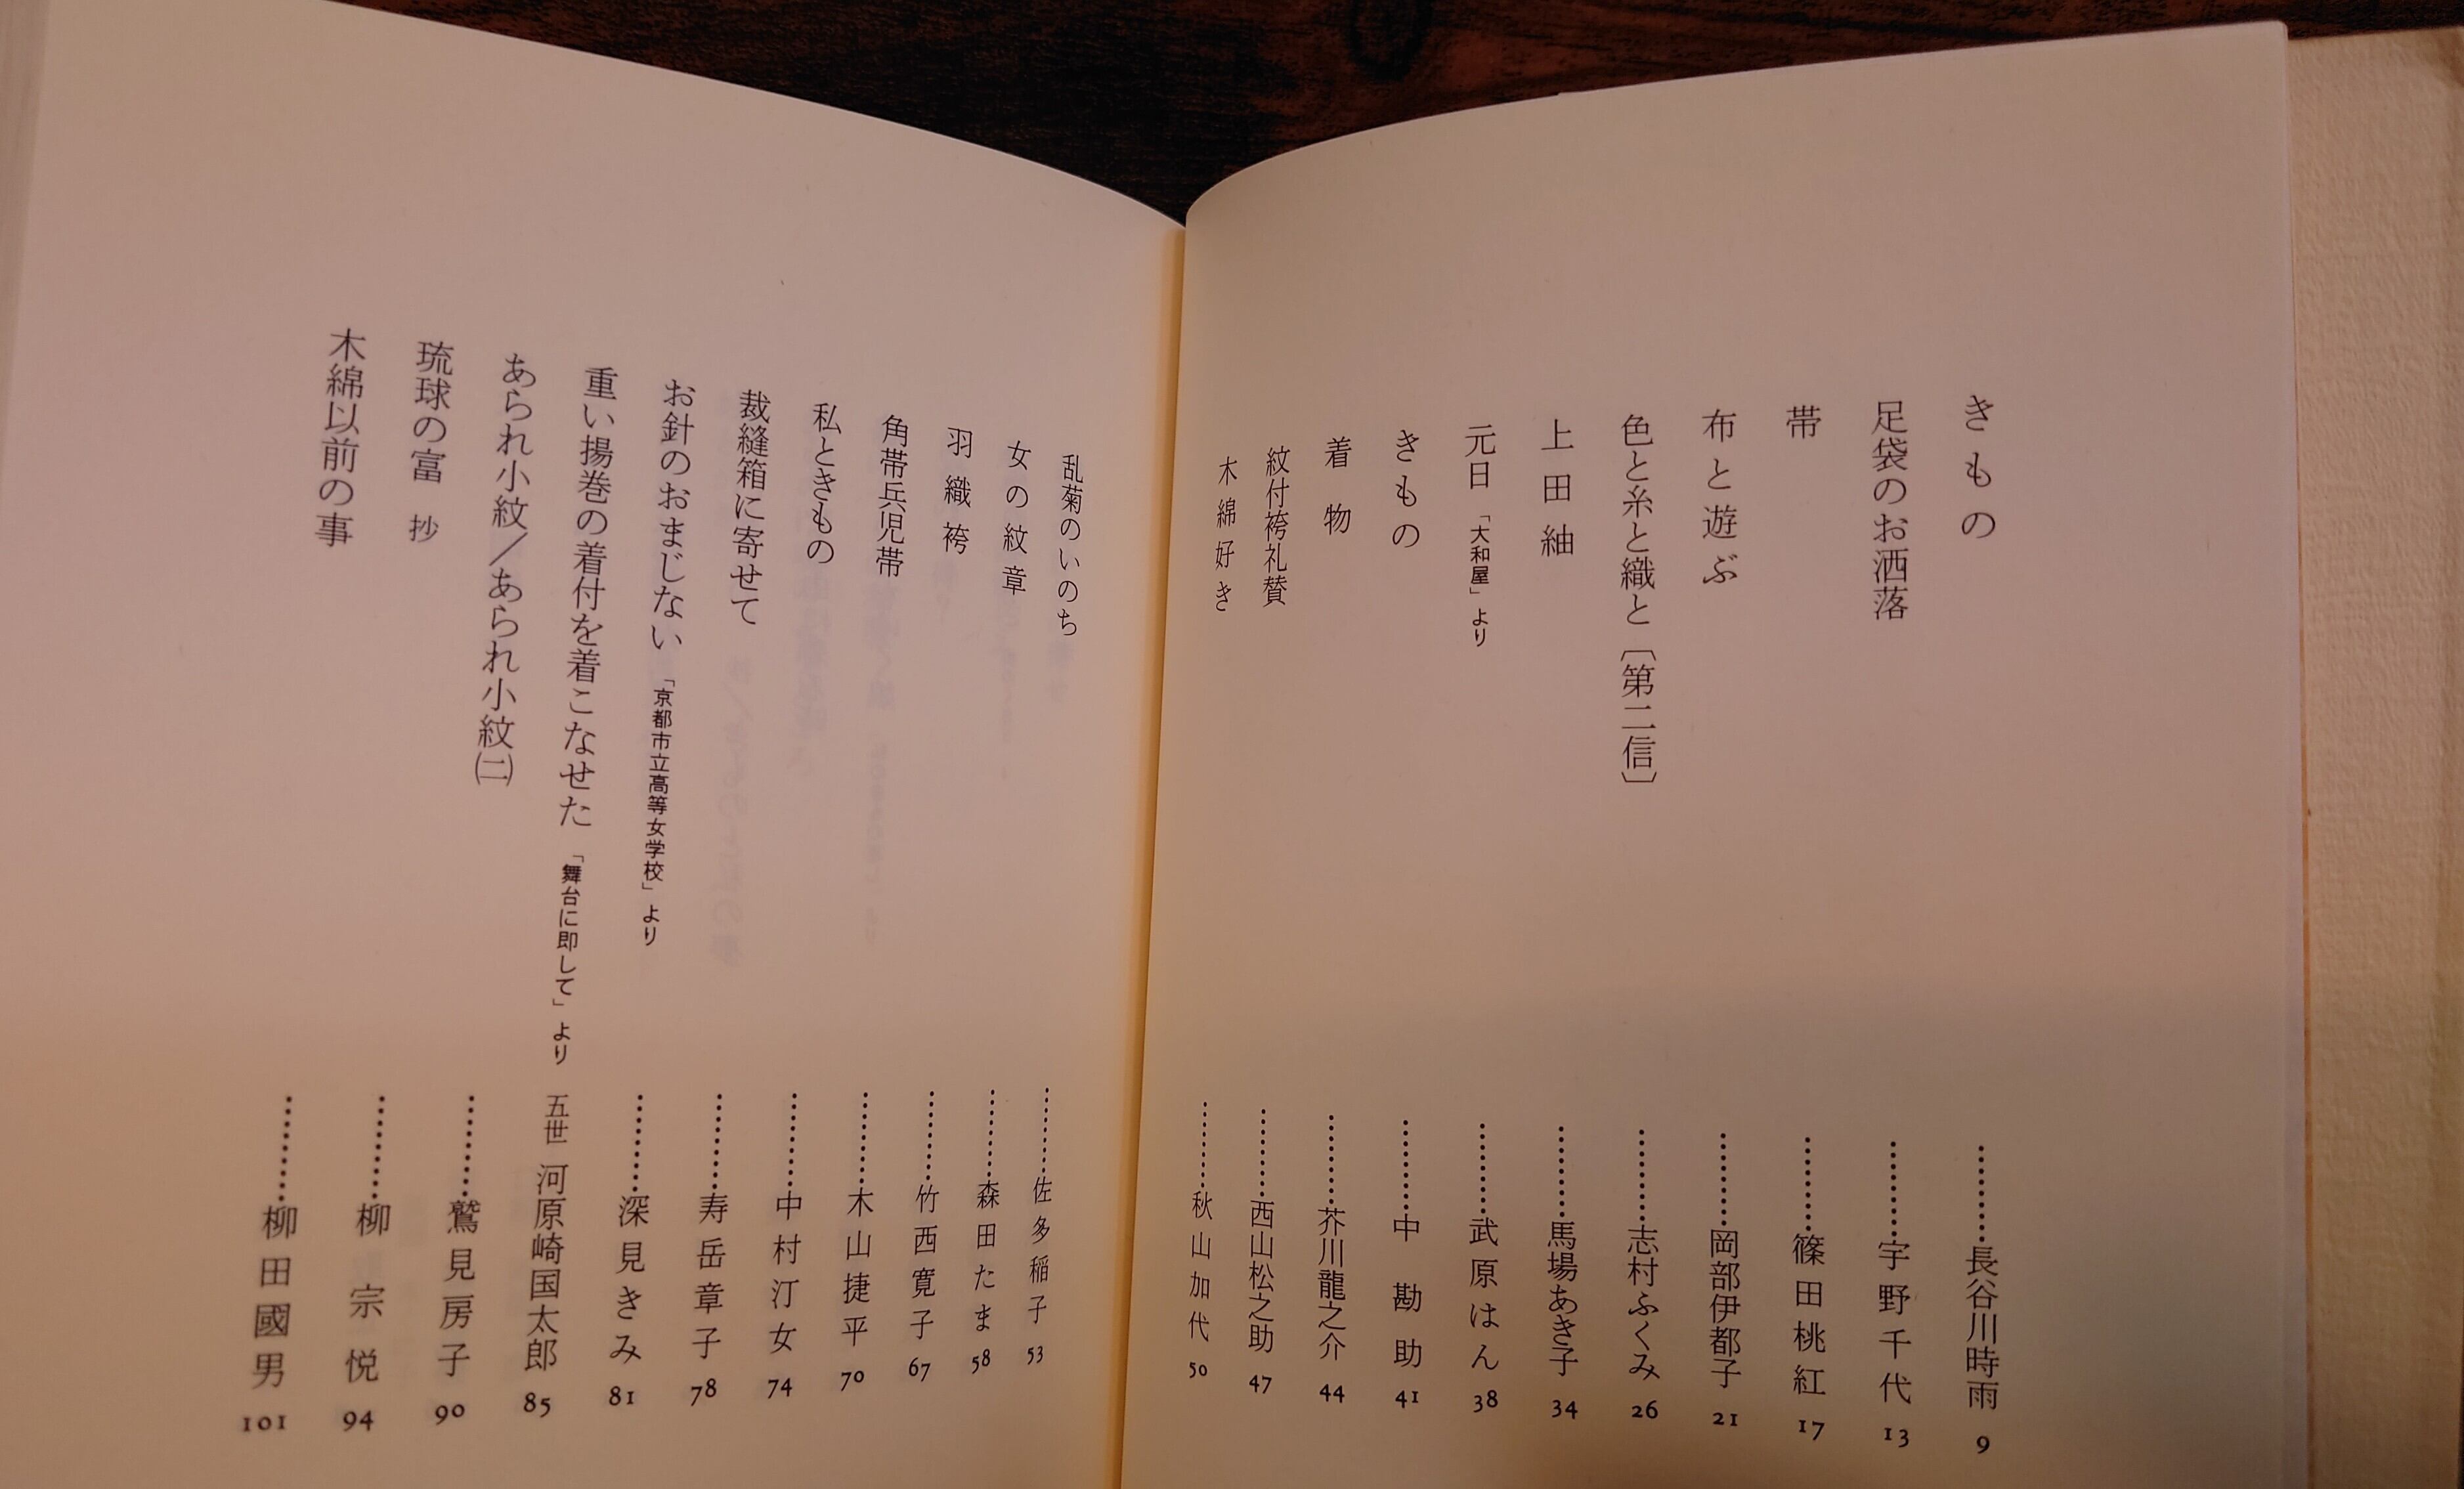 きもの………長谷川時雨 9
足袋のお洒落………宇野千代 13
帯………篠田桃紅 17
布と遊ぶ………岡部伊都子 21
色と糸と織と〔第二信〕………志村ふくみ 26
上田紬………馬場あき子 34
元日「大和屋」より………武原はん 38
きもの………中勘助 41
着物………芥川龍之介 44
紋付袴礼賛………西山松之助 47
木綿好き………秋山加代 50
乱菊のいのち………佐多稲子 53
女の紋章………森田たま 58
羽織袴………竹西寛子 67
角帯兵児帯………木山捷平 70
私ときもの………中村汀女 74
裁縫箱に寄せて………寿岳章子 78
お針のおまじない「京都市立高等女学校」より………深見きみ 81
重い揚巻の着付を着こなせた「舞台に即して」より 五世 河原崎国太郎 85
あられ小紋／あられ小紋㈡………鷲見房子 90
琉球の富 抄………柳宗悦 94
木綿以前の事………柳田國男 101